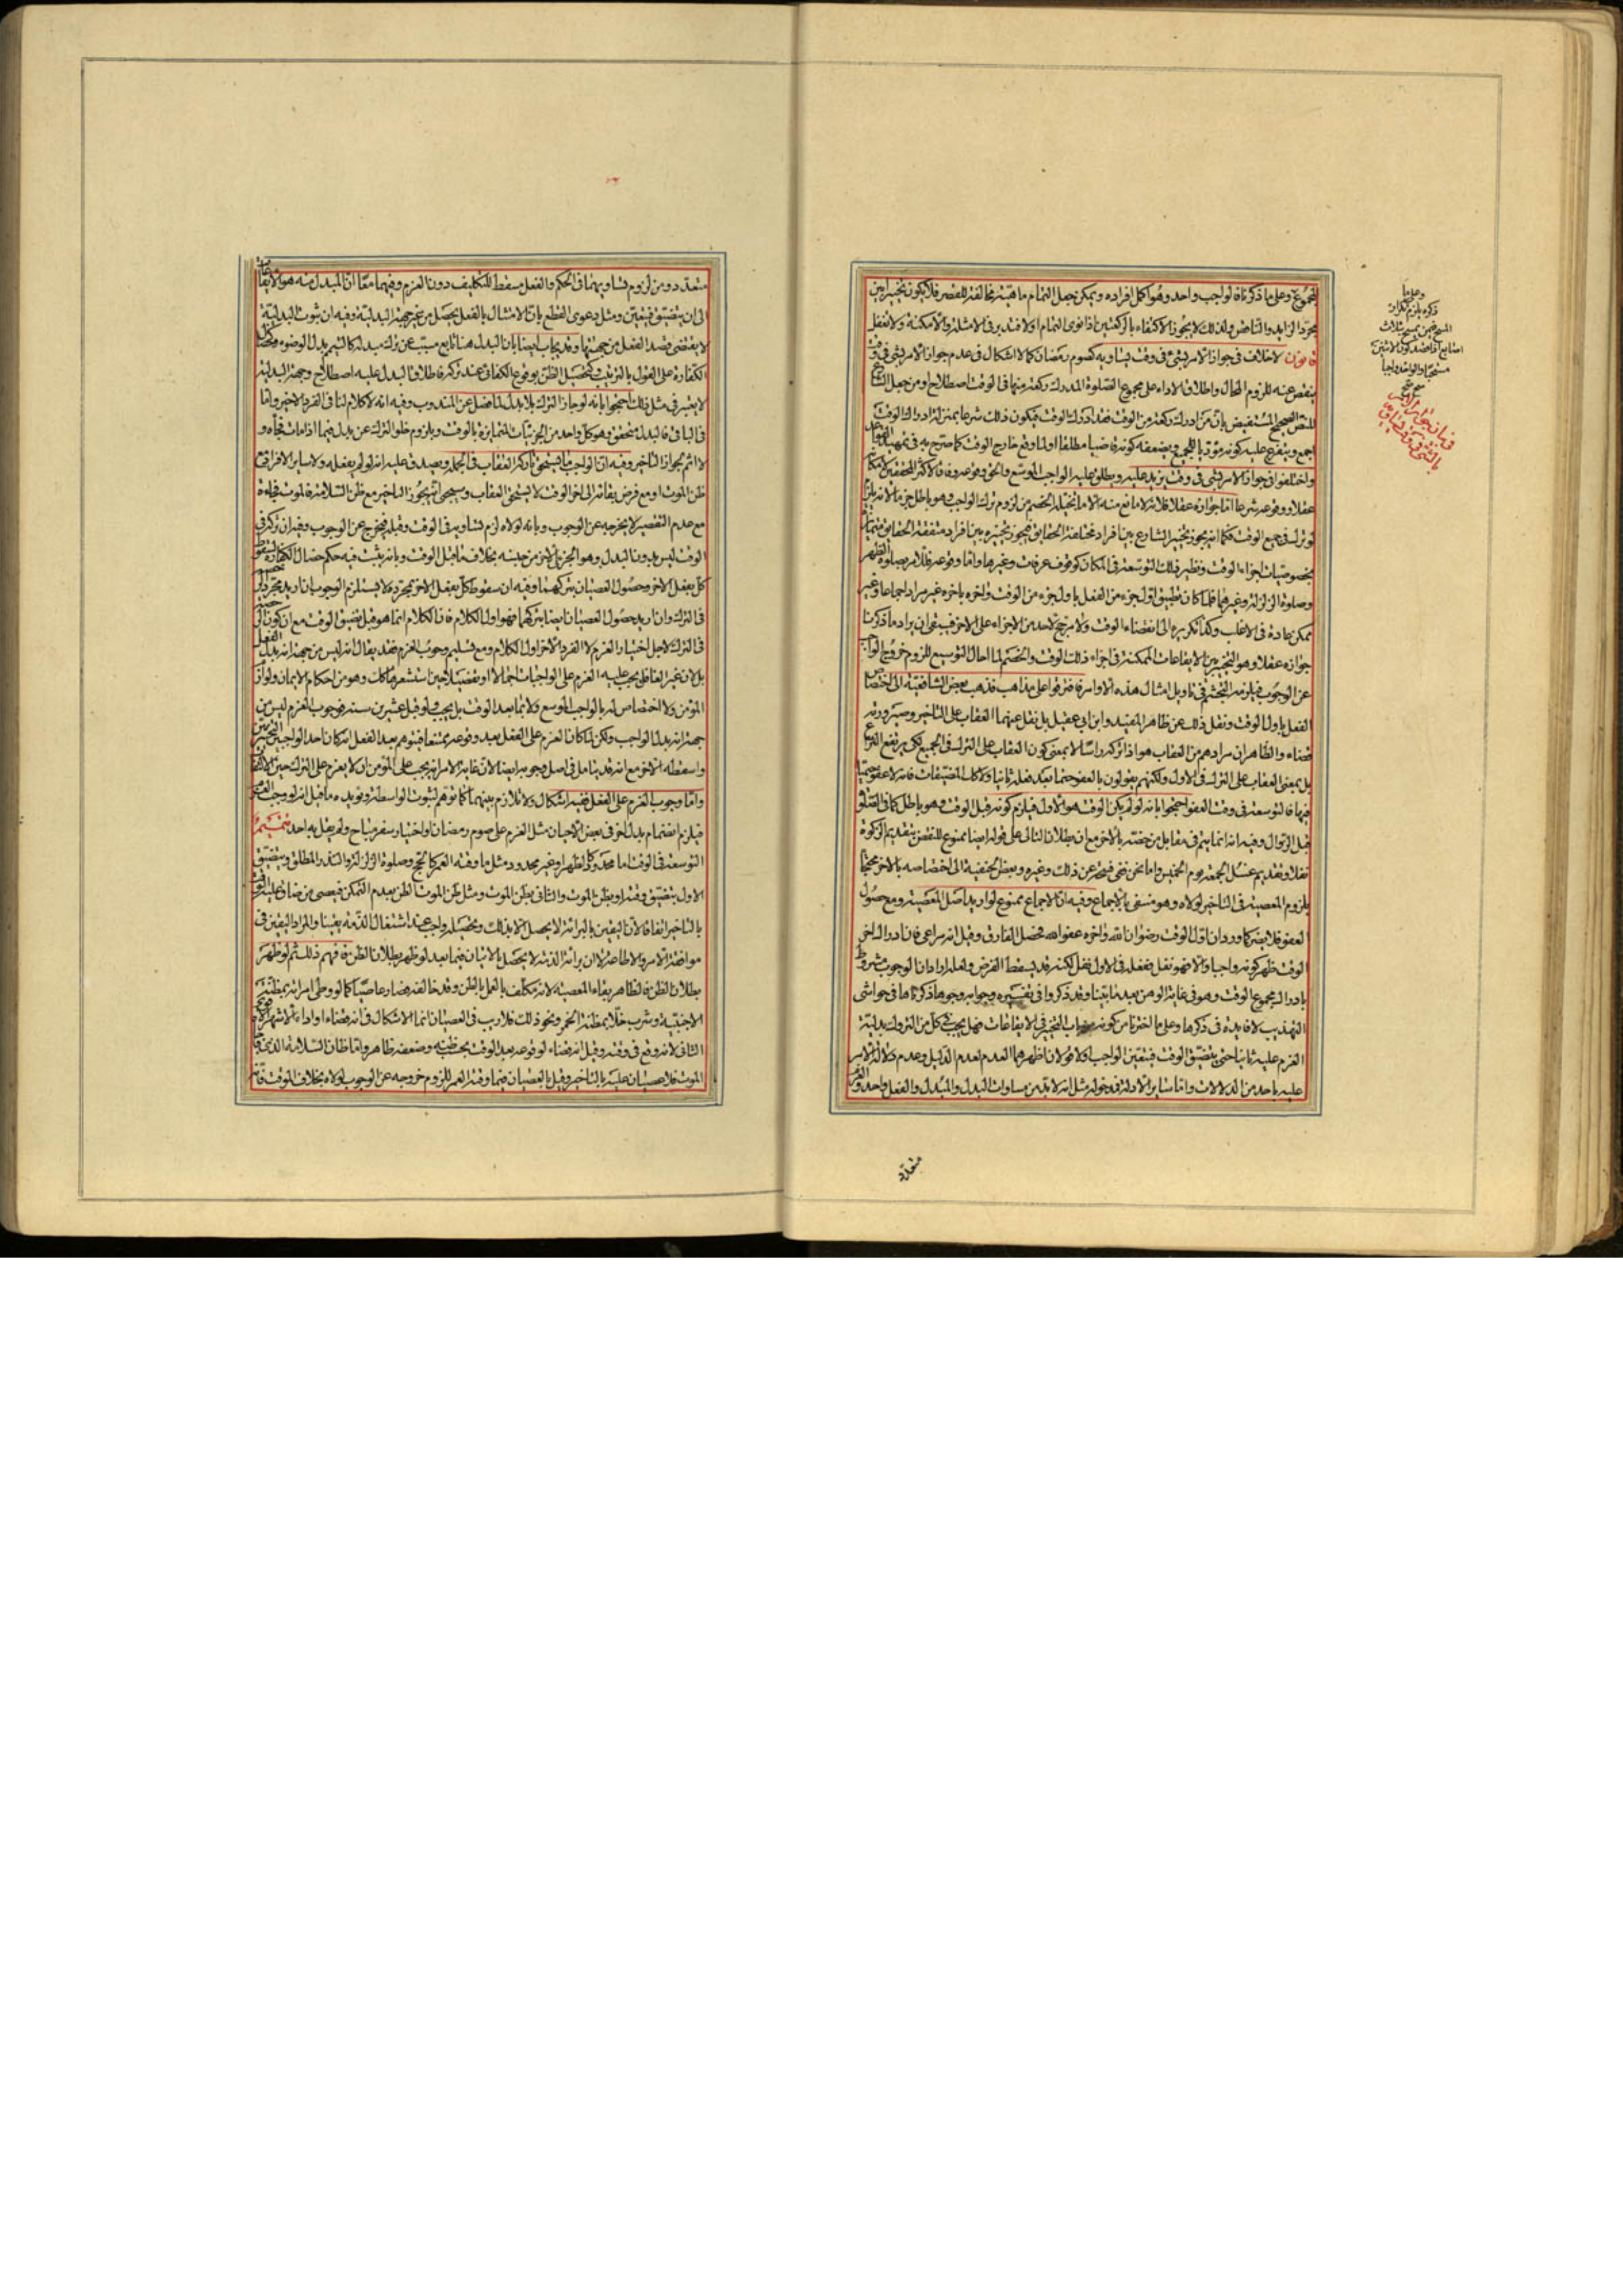 المجموع وعلى ما ذكرنا فالواجب واحد وهو اكمل افراده ويمكن جعل التمام ماهية مخالفة للقصر فلا يكون تخييرا بين
مجرد الزايد والناقص ولذلك لا يجوز الاكتفاء بالركعتين اذا نوى التمام اولا فتدبر في الامثلة والامكنة ولا تغفل
قانون لا خلاف في جواز الامر بشئ في وقت يساويه كصوم رمضان كما لا اشكال في عدم جواز الامر بشئ في وقت
ينقص عنه للزوم المحال واطلاق الاداء على مجموع الصلوة المدرك ركعة منها في الوقت اصطلاح او من جعل الشارع
للنص الصحيح المستفيض بان من ادرك ركعة من الوقت فقد ادرك الوقت فيكون ذلك شرعا بمنزلة ادراك الوقت
اجمع ويتفرع عليه كونه مؤديا للجميع ويضعفه كونه قاضيا مطلقا او لما وقع خارج الوقت كما صرح به في تمهيد القواعد
واختلفوا في جواز الامر بشئ في وقت يزيد عليه ويطلق عليه الواجب الموسع والحق وقوعه وفاقا لاكثر المحققين لامكانه
عقلا ووقوعه شرعا اما جوازه عقلا فلانه لا مانع منه الا ما تخيله الخصم من لزوم ترك الواجب وهو باطل جزما لانه يلزم
لو ترك في جميع الوقت فكما انه يجوز تخيير الشارع بين افراد مختلفة الحقايق فيجوز تخييره بين افراد متفقة الحقايق متمايزة
بخصوصيات اجزاء الوقت ونظير ذلك التوسعة في المكان كوقوف عرفات وغيرها واما وقوعه فللامر بصلوة الظهر
وصلوة الزلزلة وغيرهما فلما كان تطبيق اول جزء من الفعل باول جزء من الوقت واخره باخره غير مراد اجماعا وغير
ممكن عادة في الاغلب وكذا تكريره الى انقضاء الوقت ولا مرجح لاحد من الاجزاء على الاخر فينبغي ان يراد ما ذكرنا
جوازه عقلا وهو التخيير بين الايقاعات الممكنة في اجزاء ذلك الوقت والخصم لما احال التوسيع للزوم خروج الواجب
عن الوجوب فيلزمه التجشم في تاويل امثال هذه الاوامر فافترقوا على مذاهب فذهب بعض الشافعية الى اختصاص
الفعل باول الوقت ونقل ذلك عن ظاهر المفيد وابن ابي عقيل بل نقل عنهما العقاب على التاخير وصيرورته
قضاء والظاهر ان مرادهم من العقاب هو اذا تركه راسا لا بمعنى كون العقاب على الترك في الجميع لكي يرتفع النزاع
بل بمعنى العقاب على الترك في الاول ولكنهم يقولون بالعفو حتما بعد فعله ثانيا ولا كذلك المضيقات فانه لا عفو حتميا
فيها فالتوسعة في وقت العفو احتجوا بانه لو لم يكن الوقت هو الاول فيلزم كونه قبل الوقت وهو باطل كما في الصلوة
قبل الزوال وفيه انه انما يتم في مقابل من خصه بالاخر مع ان بطلان التالي على قوله ايضا ممنوع للنقض بتقديم الزكوة
نفلا وتقديم غسل الجمعة يوم الخميس واما نحن ففي فسحة عن ذلك وغيره وبعض الحنفية الى اختصاصه بالاخر محتجا
بلزوم المعصية في التاخير لولاه وهو منتفى بالاجماع وفيه ان الاجماع ممنوع لو اريد اصل المعصية ومع حصول
العفو فلا يضر كما ورد ان اول الوقت رضوان الله واخره عفو الله فحصل الفارق وقيل انه مراعى فان ادرك اخر
الوقت ظهر كونه واجبا والا فهو نفل ففعله في الاول نفل لكنه قد يسقط الفرض ولعله اراد ان الوجوب مشروط
بادراك مجموع الوقت وهو في غاية الوهن بعد ما بينا وقد ذكروا في تفسيره وجوابه وجوها ذكرناها في حواشي
التهذيب لا فايدة في ذكرها وعلى ما اخترنا من كونه من باب التخيير في الايقاعات فهل يجب في كل من التروك بدلية
العزم عليه ثانيا حتى يتضيق الوقت فيتعين الواجب او لا قولان اظهرهما العدم لعدم الدليل وعدم دلالة الامر
عليه باحد من الدلالات واما ساير الادلة فمدخولة مثل انه لا بد من مساوات البدل والمبدل والفعل واحد والعزم
متعدد
وعلى ما
ذكره يلزم تكرار
المسح فيمن يمسح بثلاث
اصابع اذا قصد كون الاثنين
مستحبا والواحد واجبا
قانون جواز الامر
بالشئ في وقت
متعدد ومن لزوم تساويهما في الحكم والفعل مسقط للتكليف دون العزم وفيهما معا ان المبدل منه هو الايقاعات
الى ان يتضيق فيتعين ومثل دعوى القطع بان الامتثال بالفعل يحصل من غير جهة البدلية وفيه ان ثبوت البدلية
لا يقتضي قصد الفعل من جهتها وقد يجاب ايضا بان البدل هنا تابع مسبب عن ترك مبدله كالتيمم بدل الوضوء وخصال
الكفارة على القول بالترتيب وتحصيل الظن بوقوع الكفائي عند تركه فاطلاق البدل عليه اصطلاح وجهة البدلية
لا يعتبر في مثل ذلك احتجوا بانه لو جاز الترك بلا بدل لما فصل عن المندوب وفيه انه لا كلام لنا في الفرد الاخير واما
في الباقي فالبدل متحقق وهو كل واحد من الجزئيات المتمايزة بالوقت ويلزوم خلو الترك عن بدل فيما اذا مات فجأة و
لا اثم بجواز التاخير وفيه ان الواجب ما يستحق تاركه العقاب في الجملة ويصدق عليه انه لو لم يفعله ولا ساير الافراد مع
ظن الموت او مع فرض بقائه الى اخر الوقت لا يستحق العقاب وسيجئ انه يجوز التاخير مع ظن السلامة فالموت فجاءة
مع عدم التقصير لا يخرجه عن الوجوب وبانه لولاه لزم تساويه في الوقت وقبله فيخرج عن الوجوب وفيه ان تركه في
الوقت ليس بدون البدل وهو الجزئي الاخر من جنسه بخلاف ما قبل الوقت وبانه يثبت فيه حكم خصال الكفارة لسقوط
كل بفعل الاخر وحصول العصيان بتركهما وفيه ان سقوط كل بفعل الاخر بمجرده لا يستلزم الوجوب ان اريد مجرد الرخصة
في الترك وان اريد حصول العصيان ايضا بتركهما فهو اول الكلام فالكلام انما هو قبل تضيق الوقت مع ان كون الرخصة
في الترك لاجل اختيار العزم لا الفرد الاخر اول الكلام ومع تسليم وجوب العزم فقد يقال انه ليس من جهة انه بدل الفعل
بل لان غير الغافل يجب عليه العزم على الواجبات اجمالا او تفصيلا حين استشعر بها كذلك وهو من احكام الايمان ولوازم
المؤمن ولا اختصاص له بالواجب الموسع ولا بما بعد الوقت بل يجب ولو قبل عشرين سنة فوجوب العزم ليس من
جهة انه بدل الواجب ولكن لما كان العزم على الفعل بعد وقوعه ممتنعا فيتوهم بعد الفعل انه كان احد الواجبين التخييريين
واسقطه الاخر مع انه قد يتامل في اصل وجوبه ايضا لان غاية الامر انه يجب على المؤمن ان لا يعزم على الترك حين الالتفات
واما وجوب العزم على الفعل ففيه اشكال ولا تلازم بينهما كما توهم لثبوت الواسطة ويؤيده ما قيل انه لو وجب العزم
فيلزم انضمام بدل اخر في بعض الاحيان مثل العزم على صوم رمضان او اختيار سفر مباح ولم يقل به احد تتميم
التوسعة في الوقت اما محدود كالظهر او غير محدود مثل ما وقته العمر كالحج وصلوة الزلزلة والنذر المطلق ويتضيق
الاول بتضيق وقته او بظن الموت والثاني بظن الموت ومثل ظن الموت الظن بعدم التمكن فيعصى من ضاق عليه الوقت
بالتاخير اتفاقا لان اليقين بالبرائة لا يحصل الا بذلك وتحصيله واجب عند اشتغال الذمة يقينا والمراد اليقين في
موافقة الامر والاطاعة لا ان برائة الذمة لا يحصل بالاتيان فيما بعد لو ظهر بطلان الظن فافهم ذلك ثم لو ظهر
بطلان الظن فالظاهر بقاء المعصية لانه مكلف بالعمل بالظن وقد خالفه فصار عاصيا كما لو وطئ امراته بمظنة
الاجنبية وشرب خلا بمظنة الخمر ونحو ذلك فلا ريب في العصيان انما الاشكال في انه قضاء او اداء الاشهر الاقوى
الثاني لانه وقع في وقته وقيل انه قضاء لوقوعه بعد الوقت بحسب ظنه وضعفه ظاهر واما ظان السلامة الذي فاجأه
الموت فلا عصيان عليه بالتاخير وقيل بالعصيان فيما وقته العمر للزوم خروجه عن الوجوب لولاه بخلاف الموقت فان